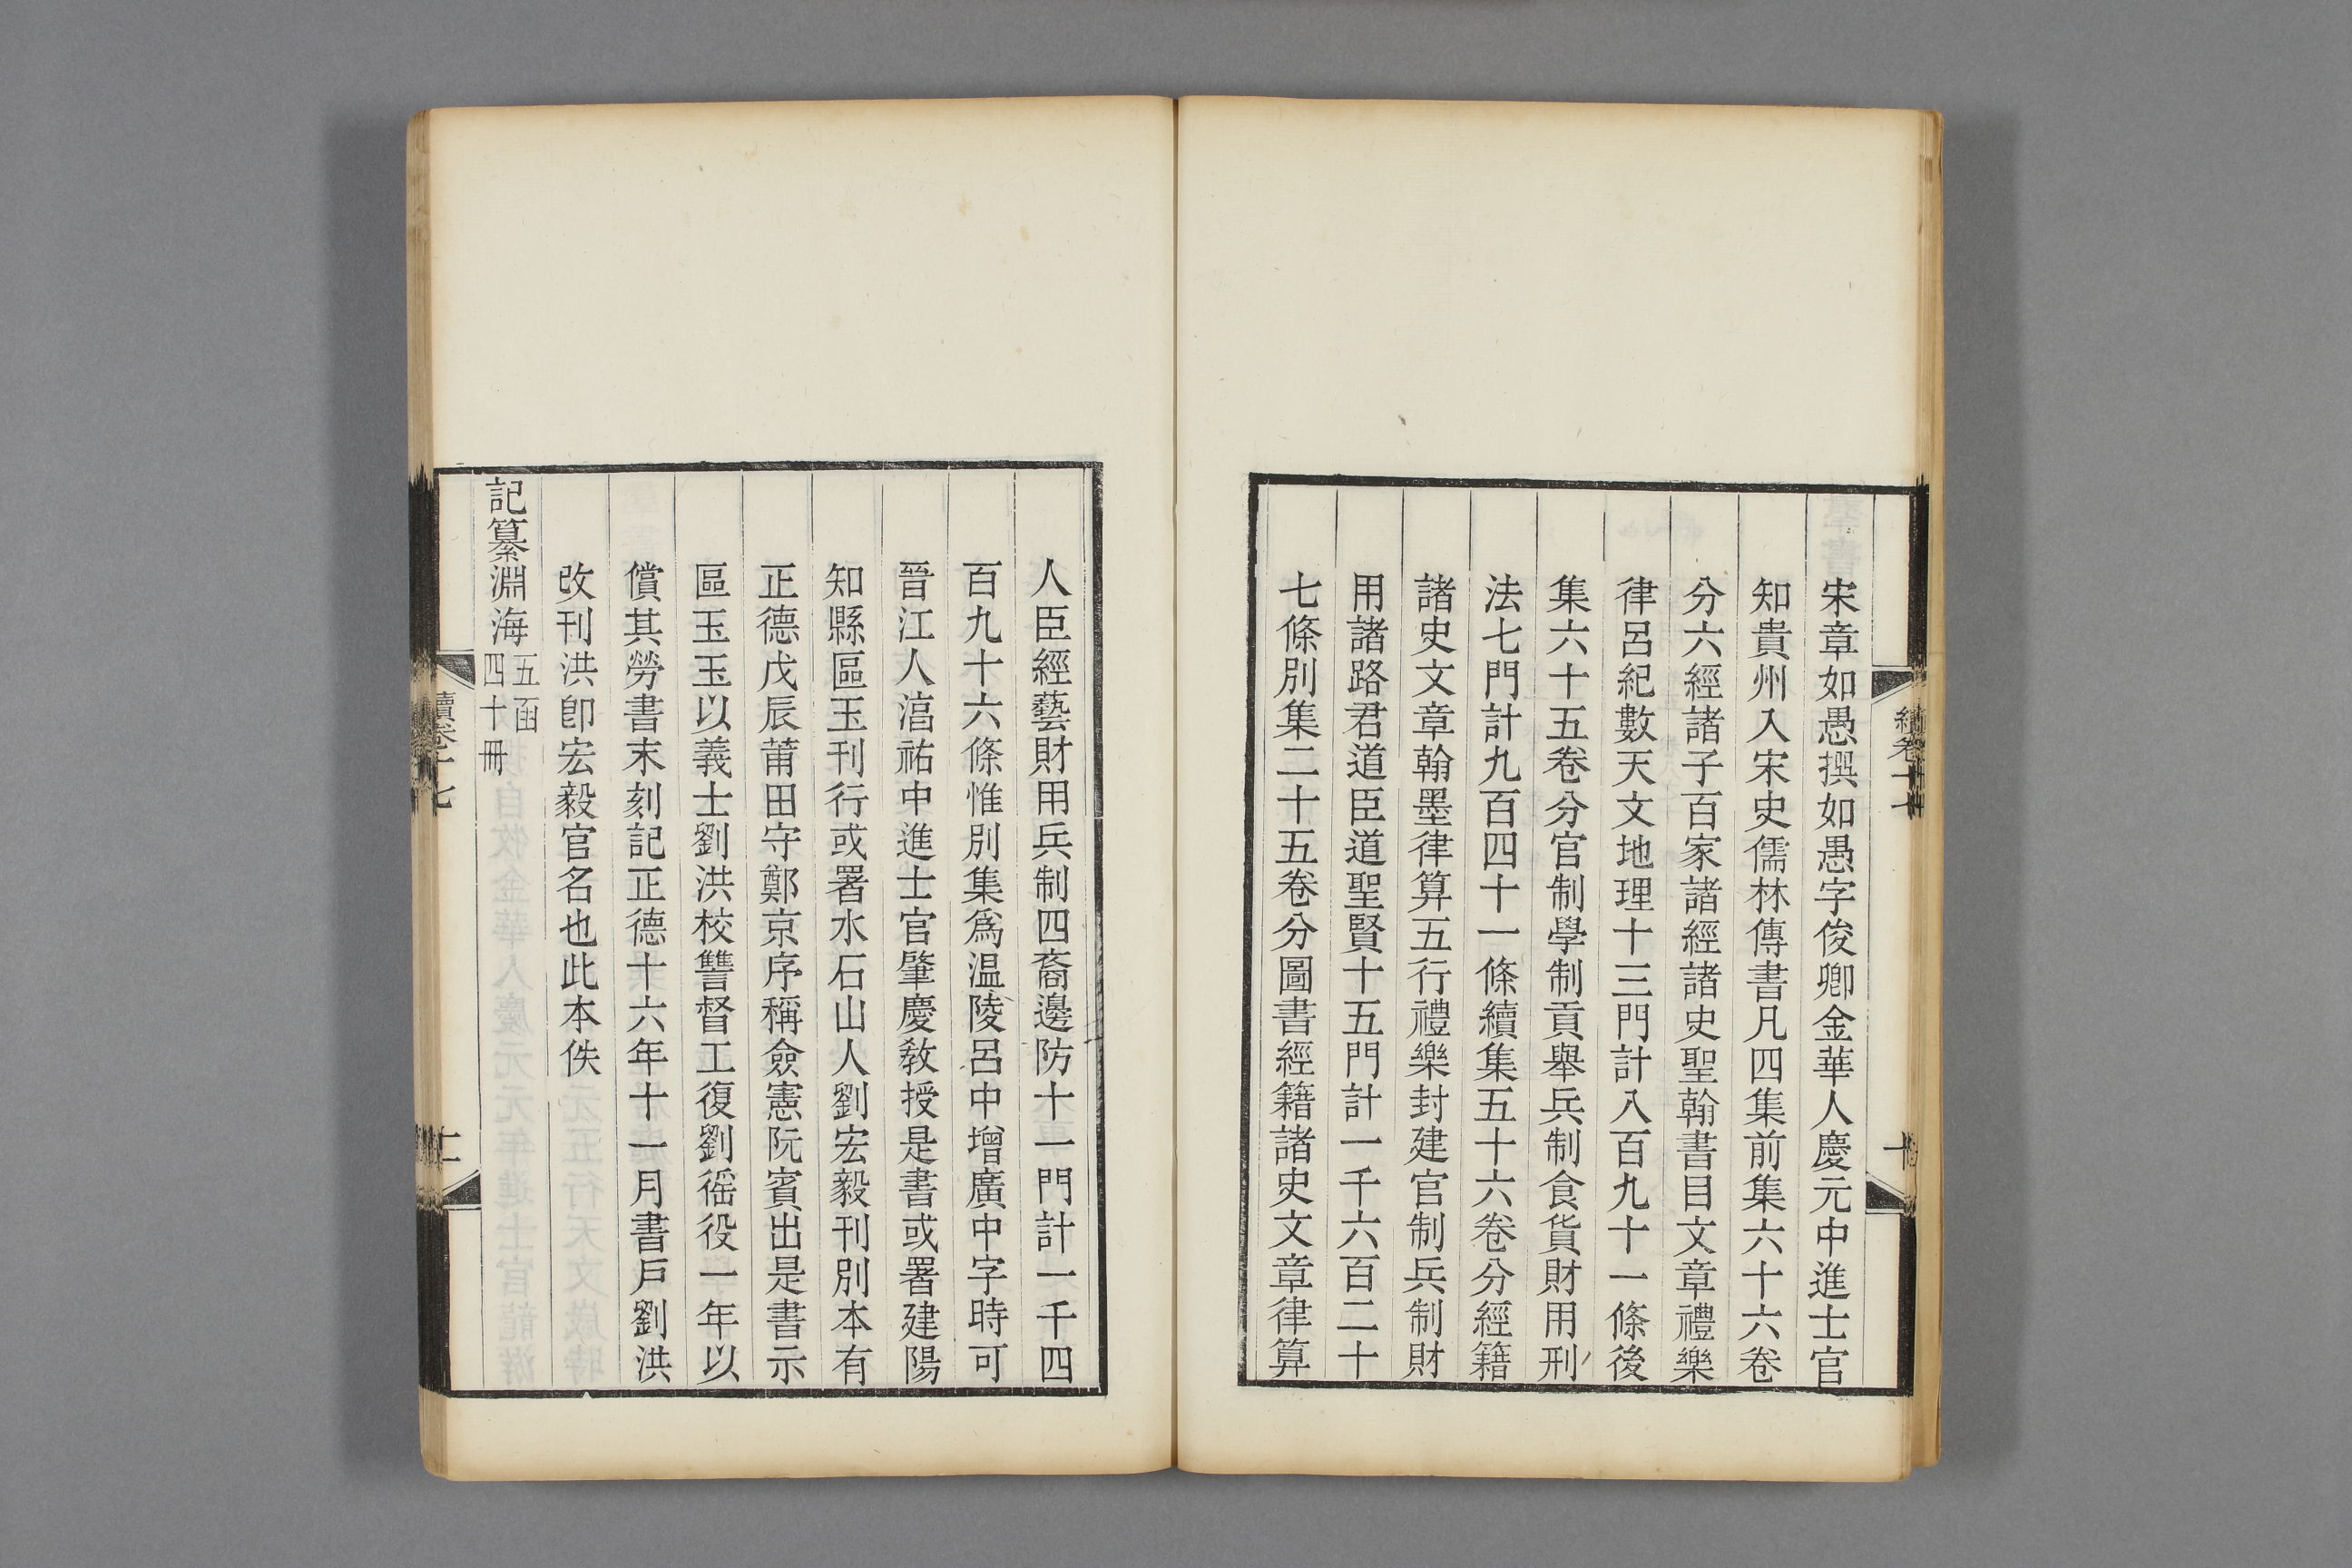 宋章如愚撰如愚字俊卿金華人慶元中進士官
知貴州入宋史儒林傳書凡四集前集六十六卷
分六經諸子百家諸經諸史聖翰書目文章禮樂
律呂紀數天文地理十三門計八百九十一條後
集六十五卷分官制學制貢舉兵制食貨財用刑
法七門計九百四十一條續集五十六卷分經籍
諸史文章翰墨律算五行禮樂封建官制兵制財
用諸路君道臣道聖賢十五門計一千六百二十
七條別集二十五卷分圖書經籍諸史文章律算
人臣經藝財用兵制四裔邊防十一門計一千四
百九十六條惟別集爲温陵呂中增廣中字時可
晉江人淳祐中進士官肇慶敎授是書或署建陽
知縣區玉刊行或署水石山人劉宏毅刊別本有
正德戊辰莆田守鄭京序稱僉憲阮賓出是書示
區玉玉以義士劉洪校讐督工復劉徭役一年以
償其勞書末刻記正德十六年十一月書戶劉洪
改刊洪卽宏毅官名也此本佚
記纂淵海五函
四十冊
續卷十七